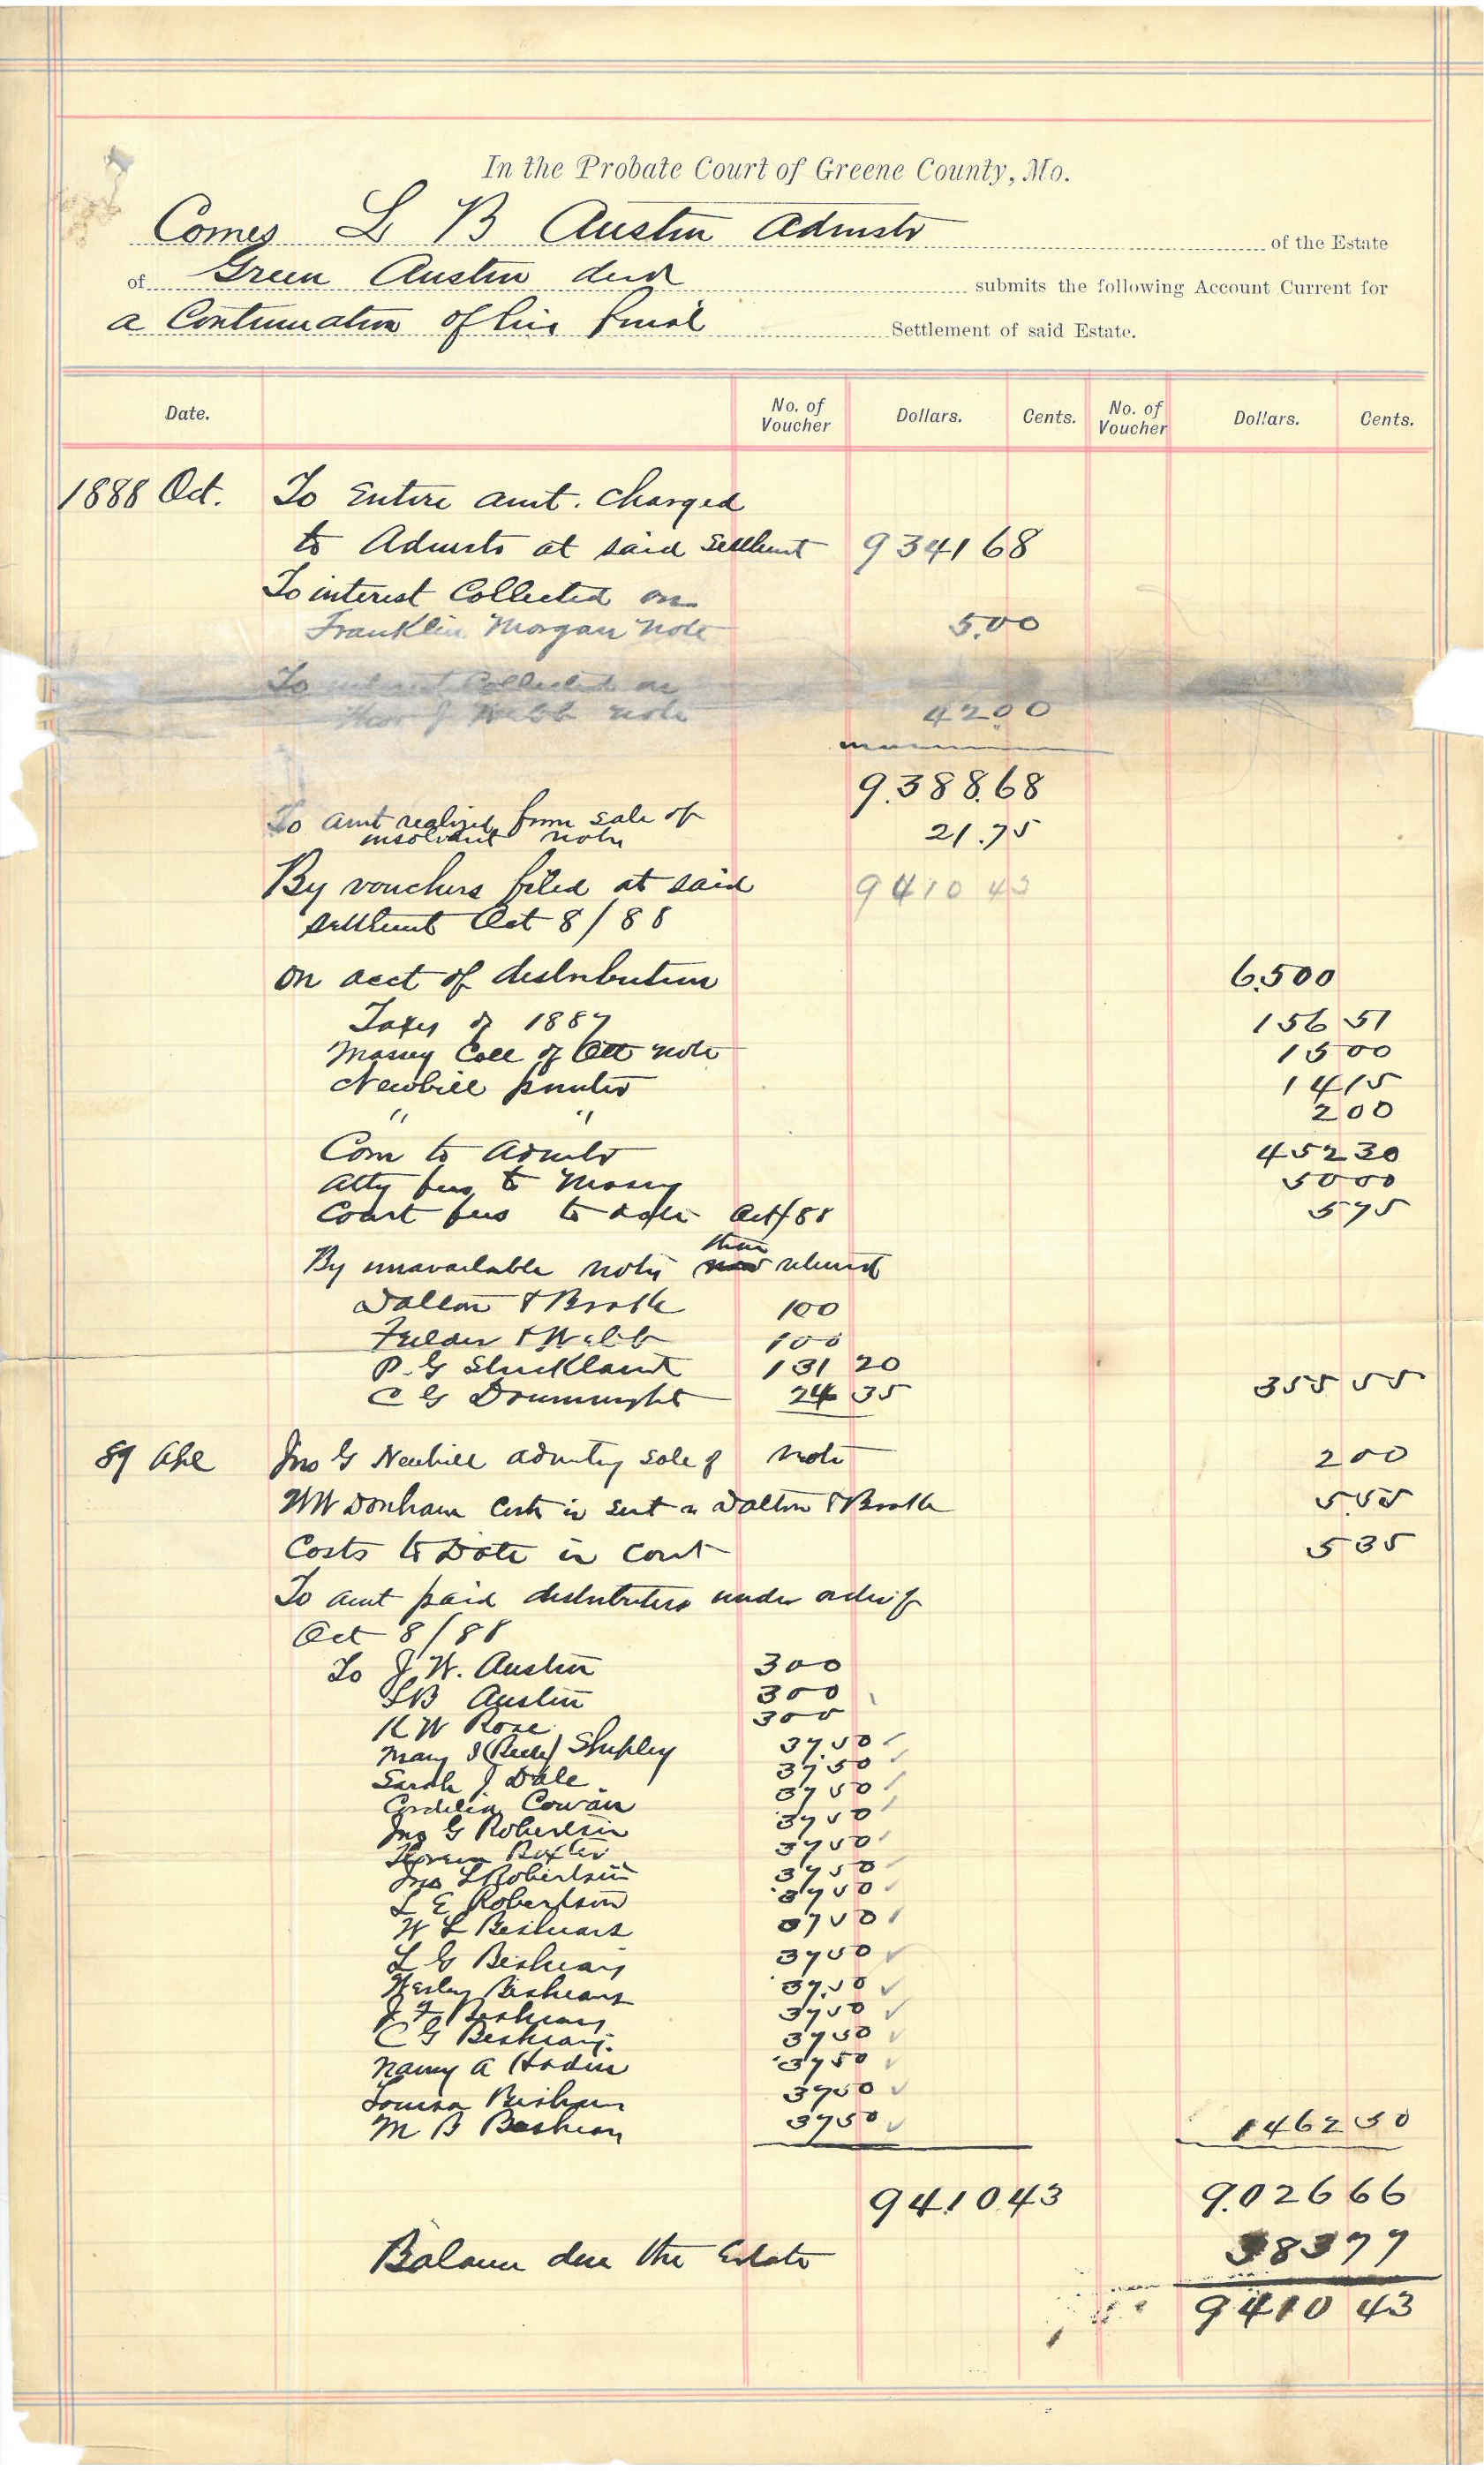 In the Probate Court of Greene County, Mo.
Comes L B Austin Admstr of the Estate
of Green Austin decd submits the following Account Current for
a Continuation of his final Settlement of said Estate.
Date. No. of Voucher Dollars. Cents. No. of Voucher Dollars. Cents.
1888 Oct. To Entire amt. charged
to Admstr at said Settlmt 9341 68
To interest Collected on
Franklin Morgan Note 5.00
To interest Collected on
J Webb note 42.00
9.388.68
To amt realized from sale of
insolvent notes 21.75
By vouchers filed at said 9410 43
settlmt Oct 8/88
on acct of distribution 6.500
Taxes of 1887 156 51
Massey Coll of Ott note 15 00
Newbill printer 14 15
" " 2 00
Com to Admstr 452 30
Atty fees to Massey 50 00
Court fees to date Oct/88 5 75
By unavailable notes then returnd
Dalton & Brooks 100
Fielder & Webb 100
P. G Strickland 131 20
C G 24 35 355 55
89 Apl Jno G Newbill advertg sale of note 2 00
WW Donham Costs in suit vs Dalton & Brooks 5.55
Costs to Date in Court 5 35
To amt paid distributees under order of
Oct 8/88
To J. W. Austin 300
LB Austin 300
R W Rose 300
Mary J (Beck) Shipley 37.50
Sarah J Dale 37 50
Cordelia Cowan 37 50
Jno G Robertson 37 50
Baxter 37 50
Jno L Robertson 37 50
L E Robertson 37 50
W L Beshears 37 50
L G Beshears 37 50
Wesley Beshears 37.50
J F Beshears 37 50
C G Beshears. 37 50
Nancy A 37 50
Louisa Beshears 37 50
M B Beshears 37 50 1462 50
9410.43 9.026 66
Balance due the Estate 383 77
9410 43